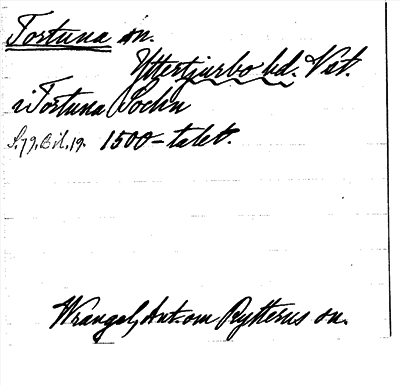 Tortuna sn.
Yttertjurbo hd. Vstm.
i Tortuna Sochn
S. 79. Bil. 19. 1500-talet.
Wrangel, Ant. om Rytterns sn.